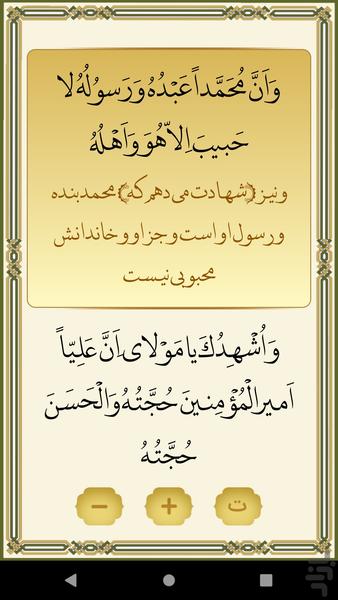 وَاَنَّ مُحَمَّداً عَبْدُهُ وَ رَسوُلُهُ لا
حَبيبَ اِلاّ هُوَ وَ اَهْلُهُ
و نیز (شهادت می دهم که) محمد بنده
و رسول او است و جز او و خاندانش
محبوبی نیست
وَ اُشْهِدُكَ يا مَوْلاىَ اَنَّ عَلِيّاً
اَميرَالْمُؤْمِنينَ حُجَّتُهُ وَ الْحَسَنَ
حُجَّتُهُ
− + ت
بازار